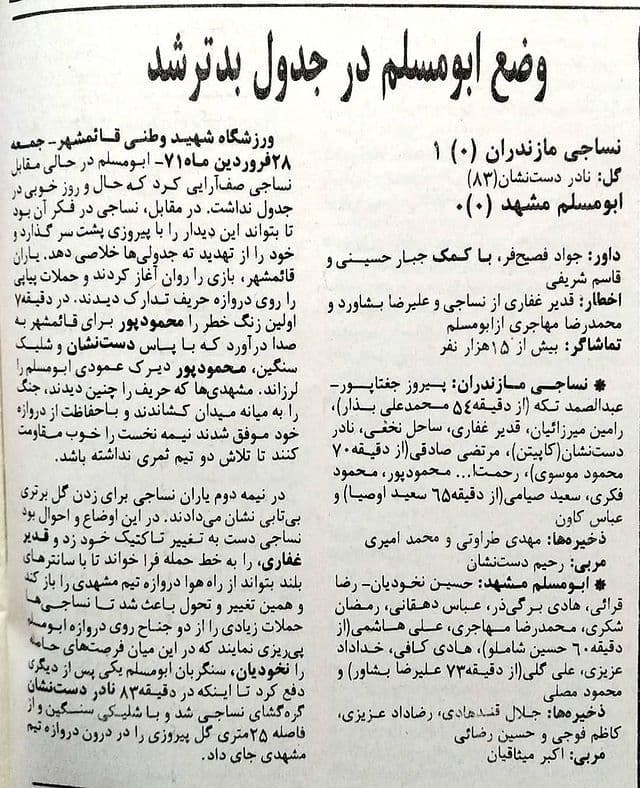 وضع ابومسلم در جدول بدتر شد
نساجی مازندران (۰) ۱
گل: نادر دست‌نشان(۸۳)
ابومسلم مشهد (۰)۰
داور: جواد فصیح‌فر، با کمک جبار حسینی و
قاسم شریفی
اخطار: قدیر غفاری از نساجی و علیرضا بشاورد و
محمدرضا مهاجری ازابومسلم
تماشاگر: بیش از ۱۵هزار نفر
* نساجی مازندران: پیروز جغتاپور-
عبدالصمد تکه (از دقیقه۵۴ محمدعلی بذار)،
رامین میرزائیان، قدیر غفاری، ساحل نخفی، نادر
دست‌نشان(کاپیتن)، مرتضی صادقی(از دقیقه۷۰
محمود موسوی)، رحمت‌ا... محمودپور، محمود
فکری، سعید صیامی(از دقیقه۶۵ سعید اوصیا) و
عباس کاون
ذخیره‌ها: مهدی طراوتی و محمد امیری
مربی: رحیم دست‌نشان
* ابومسلم مشهد: حسین نخودیان- رضا
قرائی، هادی برگی‌ذر، عباس دهقانی، رمضان
شکری، محمدرضا مهاجری، علی هاشمی(از
دقیقه۶۰ حسین شاملو)، هادی کافی، خداداد
عزیزی، علی گلی(از دقیقه۷۳ علیرضا بشاور) و
محمود مصلی
ذخیره‌ها: جلال قندهادی، رضاداد عزیزی،
کاظم فوجی و حسین رضائی
مربی: اکبر میثاقیان
ورزشگاه شهید وطنی قائمشهر- جمعه
۲۸فروردین ماه۷۱- ابومسلم در حالی مقابل
نساجی صف‌آرایی کرد که حال و روز خوبی در
جدول نداشت. در مقابل، نساجی در فکر آن بود
تا بتواند این دیدار را با پیروزی پشت سر گذارد و
خود را از تهدید ته جدولی‌ها خلاصی دهد. یاران
قائمشهر، بازی را روان آغاز کردند و حملات پیاپی
را روی دروازه حریف تدارک دیدند. در دقیقه۷
اولین زنگ خطر را محمودپور برای قائمشهر به
صدا درآورد که با پاس دست‌نشان و شلیک
سنگین، محمودپور دیرک عمودی ابومسلم را
لرزاند. مشهدی‌ها که حریف را چنین دیدند، جنگ
را به میانه میدان کشاندند و باحفاظت از دروازه
خود موفق شدند نیمه نخست را خوب مقاومت
کنند تا تلاش دو تیم ثمری نداشته باشد.
در نیمه دوم یاران نساجی برای زدن گل برتری
بی‌تابی نشان می‌دادند. در این اوضاع و احوال بود
نساجی دست به تغییر تاکتیک خود زد و قدیر
غفاری، را به خط حمله فرا خواند تا با سانترهای
بلند بتواند از راه هوا دروازه تیم مشهدی را باز کند
و همین تغییر و تحول باعث شد تا نساجی‌ها
حملات زیادی را از دو جناح روی دروازه ابومسلم
پی‌ریزی نمایند که در این میان فرصت‌های
را نخودیان، سنگربان ابومسلم یکی پس از دیگری
دفع کرد تا اینکه در دقیقه۸۳ نادر دست‌نشان
گره‌گشای نساجی شد و با شلیکی سنگین و از
فاصله ۲۵متری گل پیروزی را در درون دروازه تیم
مشهدی جای داد.